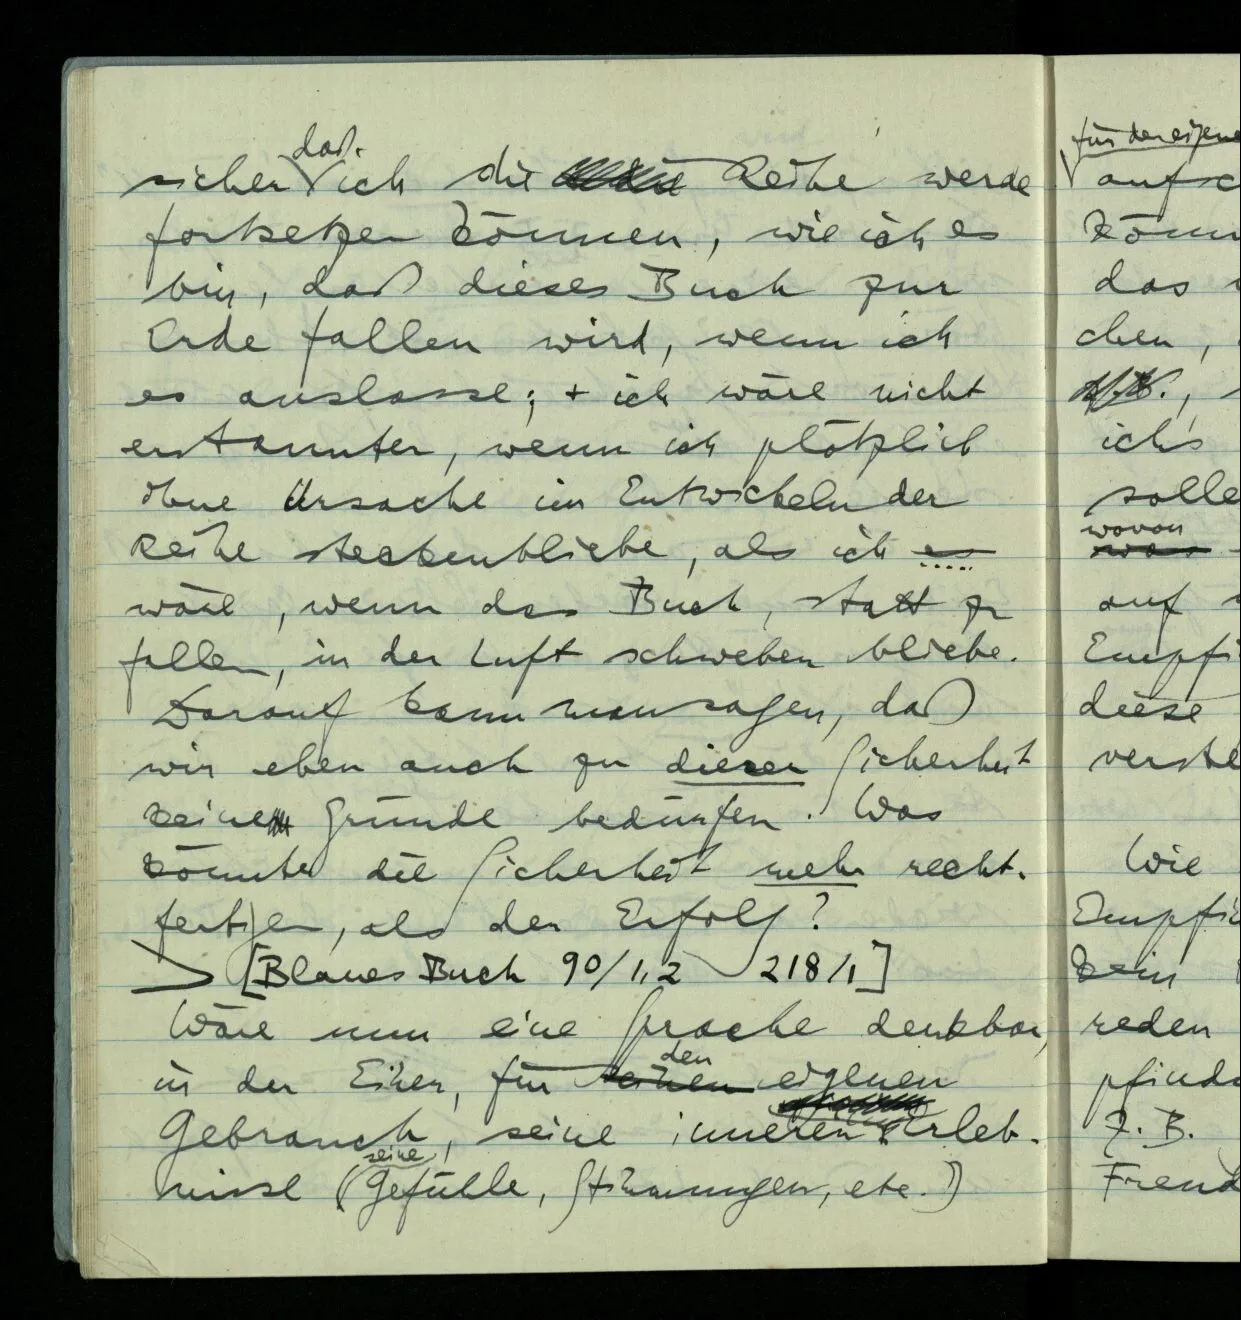 sicher daß ich die Reihe werde
fortsetzen können, wie ich es
bin, daß dieses Buch zur
Erde fallen wird, wenn ich
es auslasse; + ich wäre nicht
erstaunter, wenn ich plötzlich
ohne Ursache im Entwickeln der
Reihe steckenbliebe, als ich es
wäre, wenn das Buch, statt zu
fallen, in der Luft schweben bliebe.
Darauf kann man sagen, daß
wir eben auch zu dieser Sicherheit
keine Gründe bedürfen. Was
könnte die Sicherheit mehr recht-
fertigen, als der Erfolg?
[Blaues Buch 90/1,2 218/1]
Wäre nun eine Sprache denkbar,
in der Einer, für seinen den eigenen
Gebrauch, seine inneren Erleb-
nisse (seine Gefühle, Stimmungen, etc.)
für der eigene
aufsc
könn
das
chen,
ich's
solle
wovon
was
auf
Empfi
diese
verste
Wie
Empfi
kein
reden
pfind
Z.B.
Freud